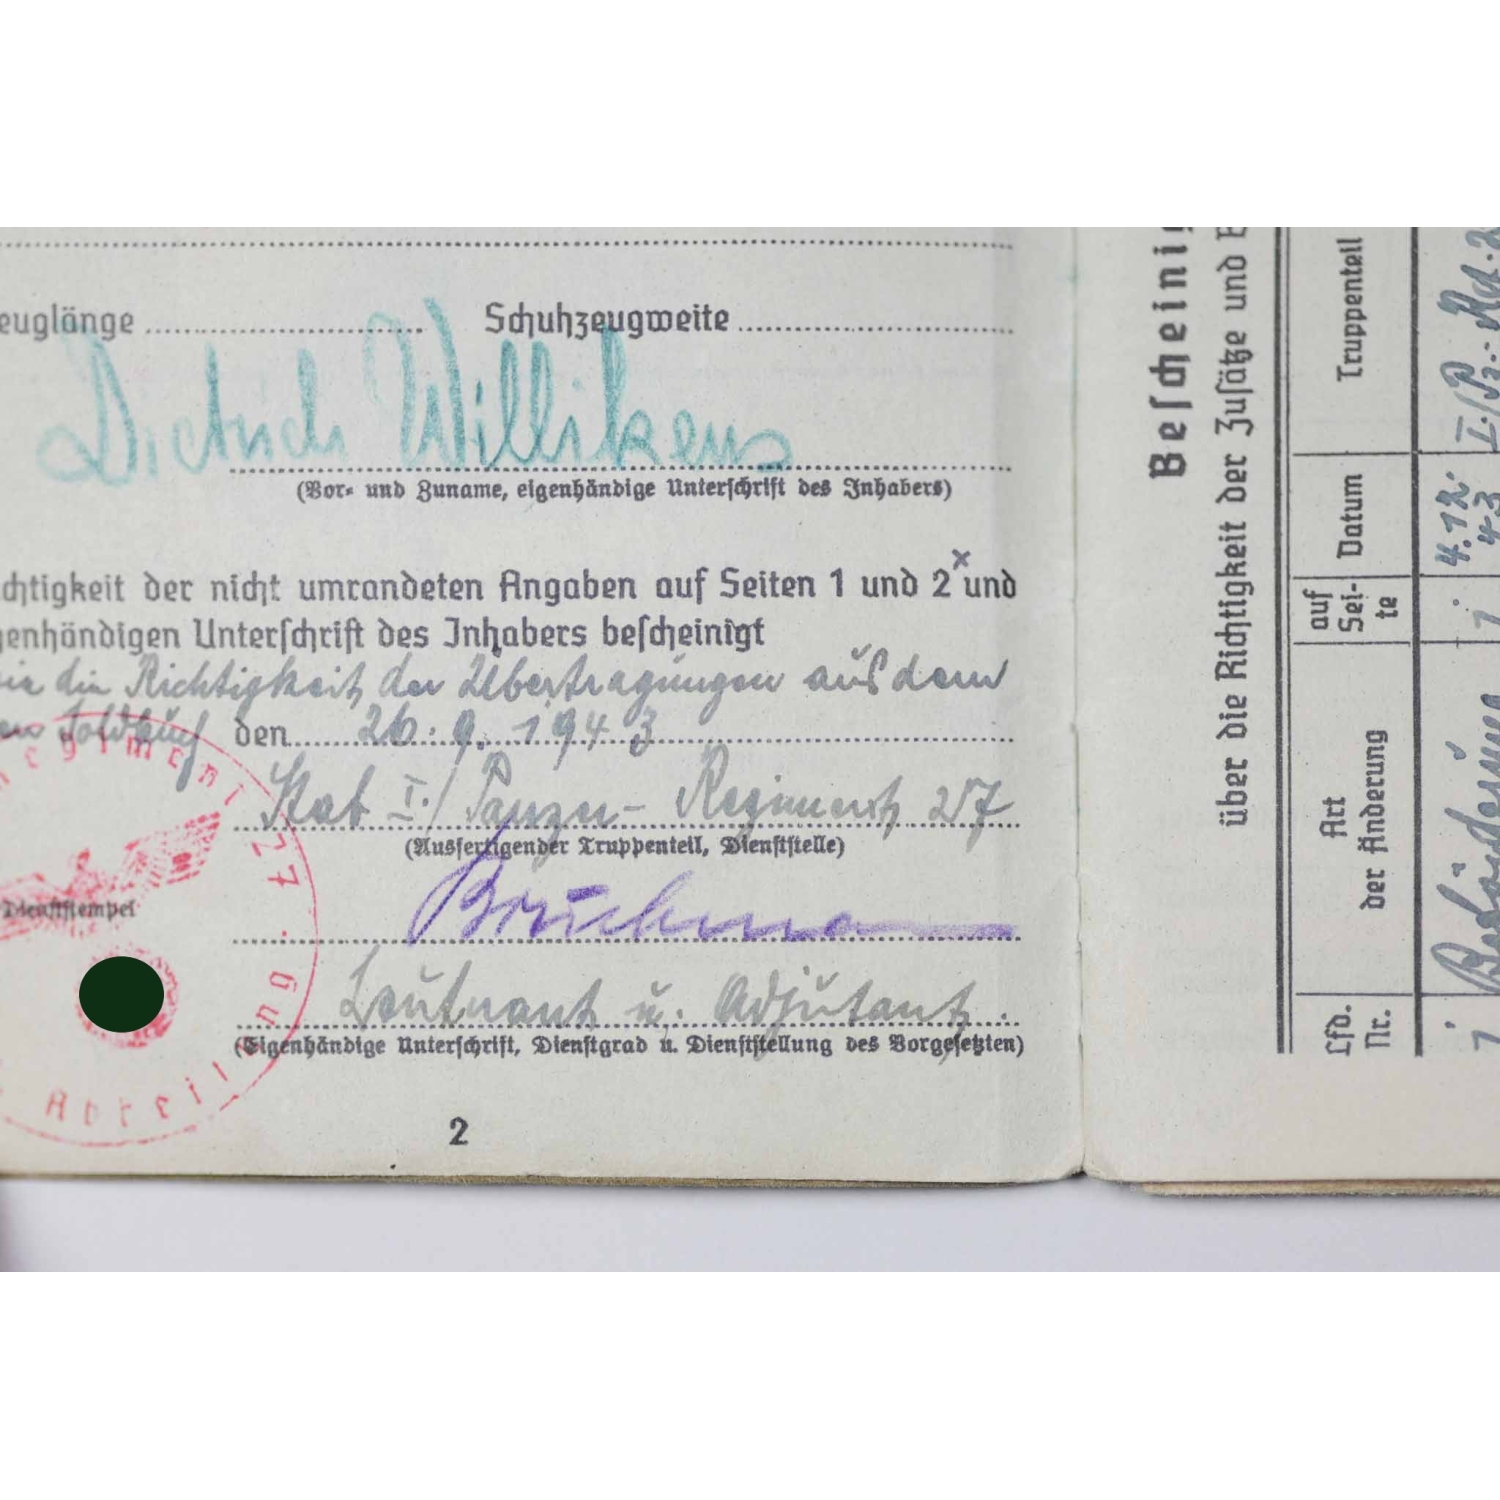 euglänge ........ Schuhzeugweite ........
Dietrich Willikens
(Vor- und Zuname, eigenhändige Unterschrift des Inhabers)
chtigkeit der nicht umrandeten Angaben auf Seiten 1 und 2 × und
genhändigen Unterschrift des Inhabers bescheinigt
die Richtigkeit der Übertragungen aus dem
Soldbuch den 26.9.1943
Stab I./Panzer-Regiment 27
(Ausfertigender Truppenteil, Dienststelle)
Dienststempel
Leutnant u. Adjutant.
(Eigenhändige Unterschrift, Dienstgrad u. Dienststellung des Vorgesetzten)
2
Regiment 27.
Abteilung
Bescheini
über die Richtigkeit der Zusätze und B
Lfd. Nr.
Art der Änderung
auf Sei-te
Datum
Truppenteil
1
Beförderung
1
4.12.43
I./Pz.-